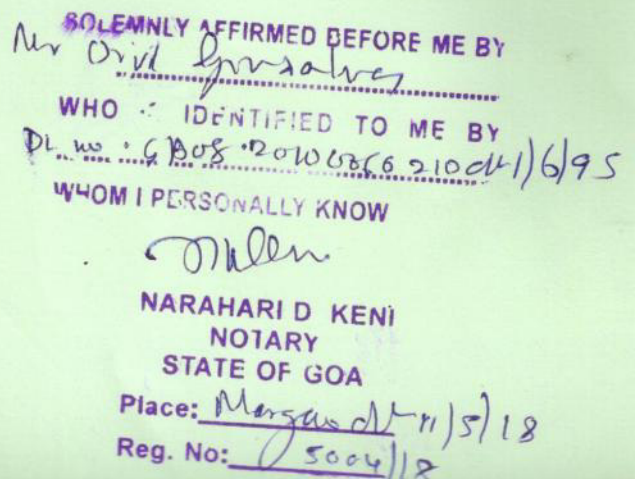 SOLEMNLY AFFIRMED BEFORE ME BY
Mr Gonsalves
WHO IDENTIFIED TO ME BY
DL no : 1/6/95
WHOM I PERSONALLY KNOW
NARAHARI D KENI
NOTARY
STATE OF GOA
Place: Margao dt 11/5/18
Reg. No: 5004/18